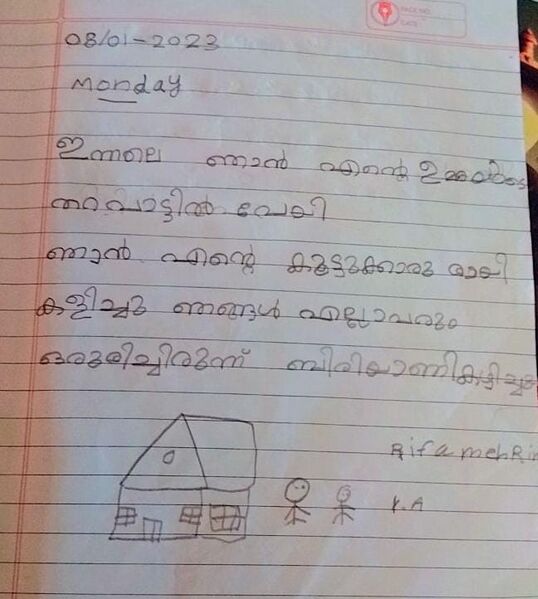 PAGE NO.
DATE
08/01-2023
Monday
ഇന്നലെ ഞാൻ എന്റെ ഉമ്മയുടെ
തറവാട്ടിൽ പോയി
ഞാൻ എന്റെ കൂട്ടുക്കാരു മായി
കളിച്ചു ഞങ്ങൾ എല്ലാവരും
ഒരുമിച്ചിരുന്ന് ബിരിയാണികഴിച്ചു
Rifa mehRin
K.A